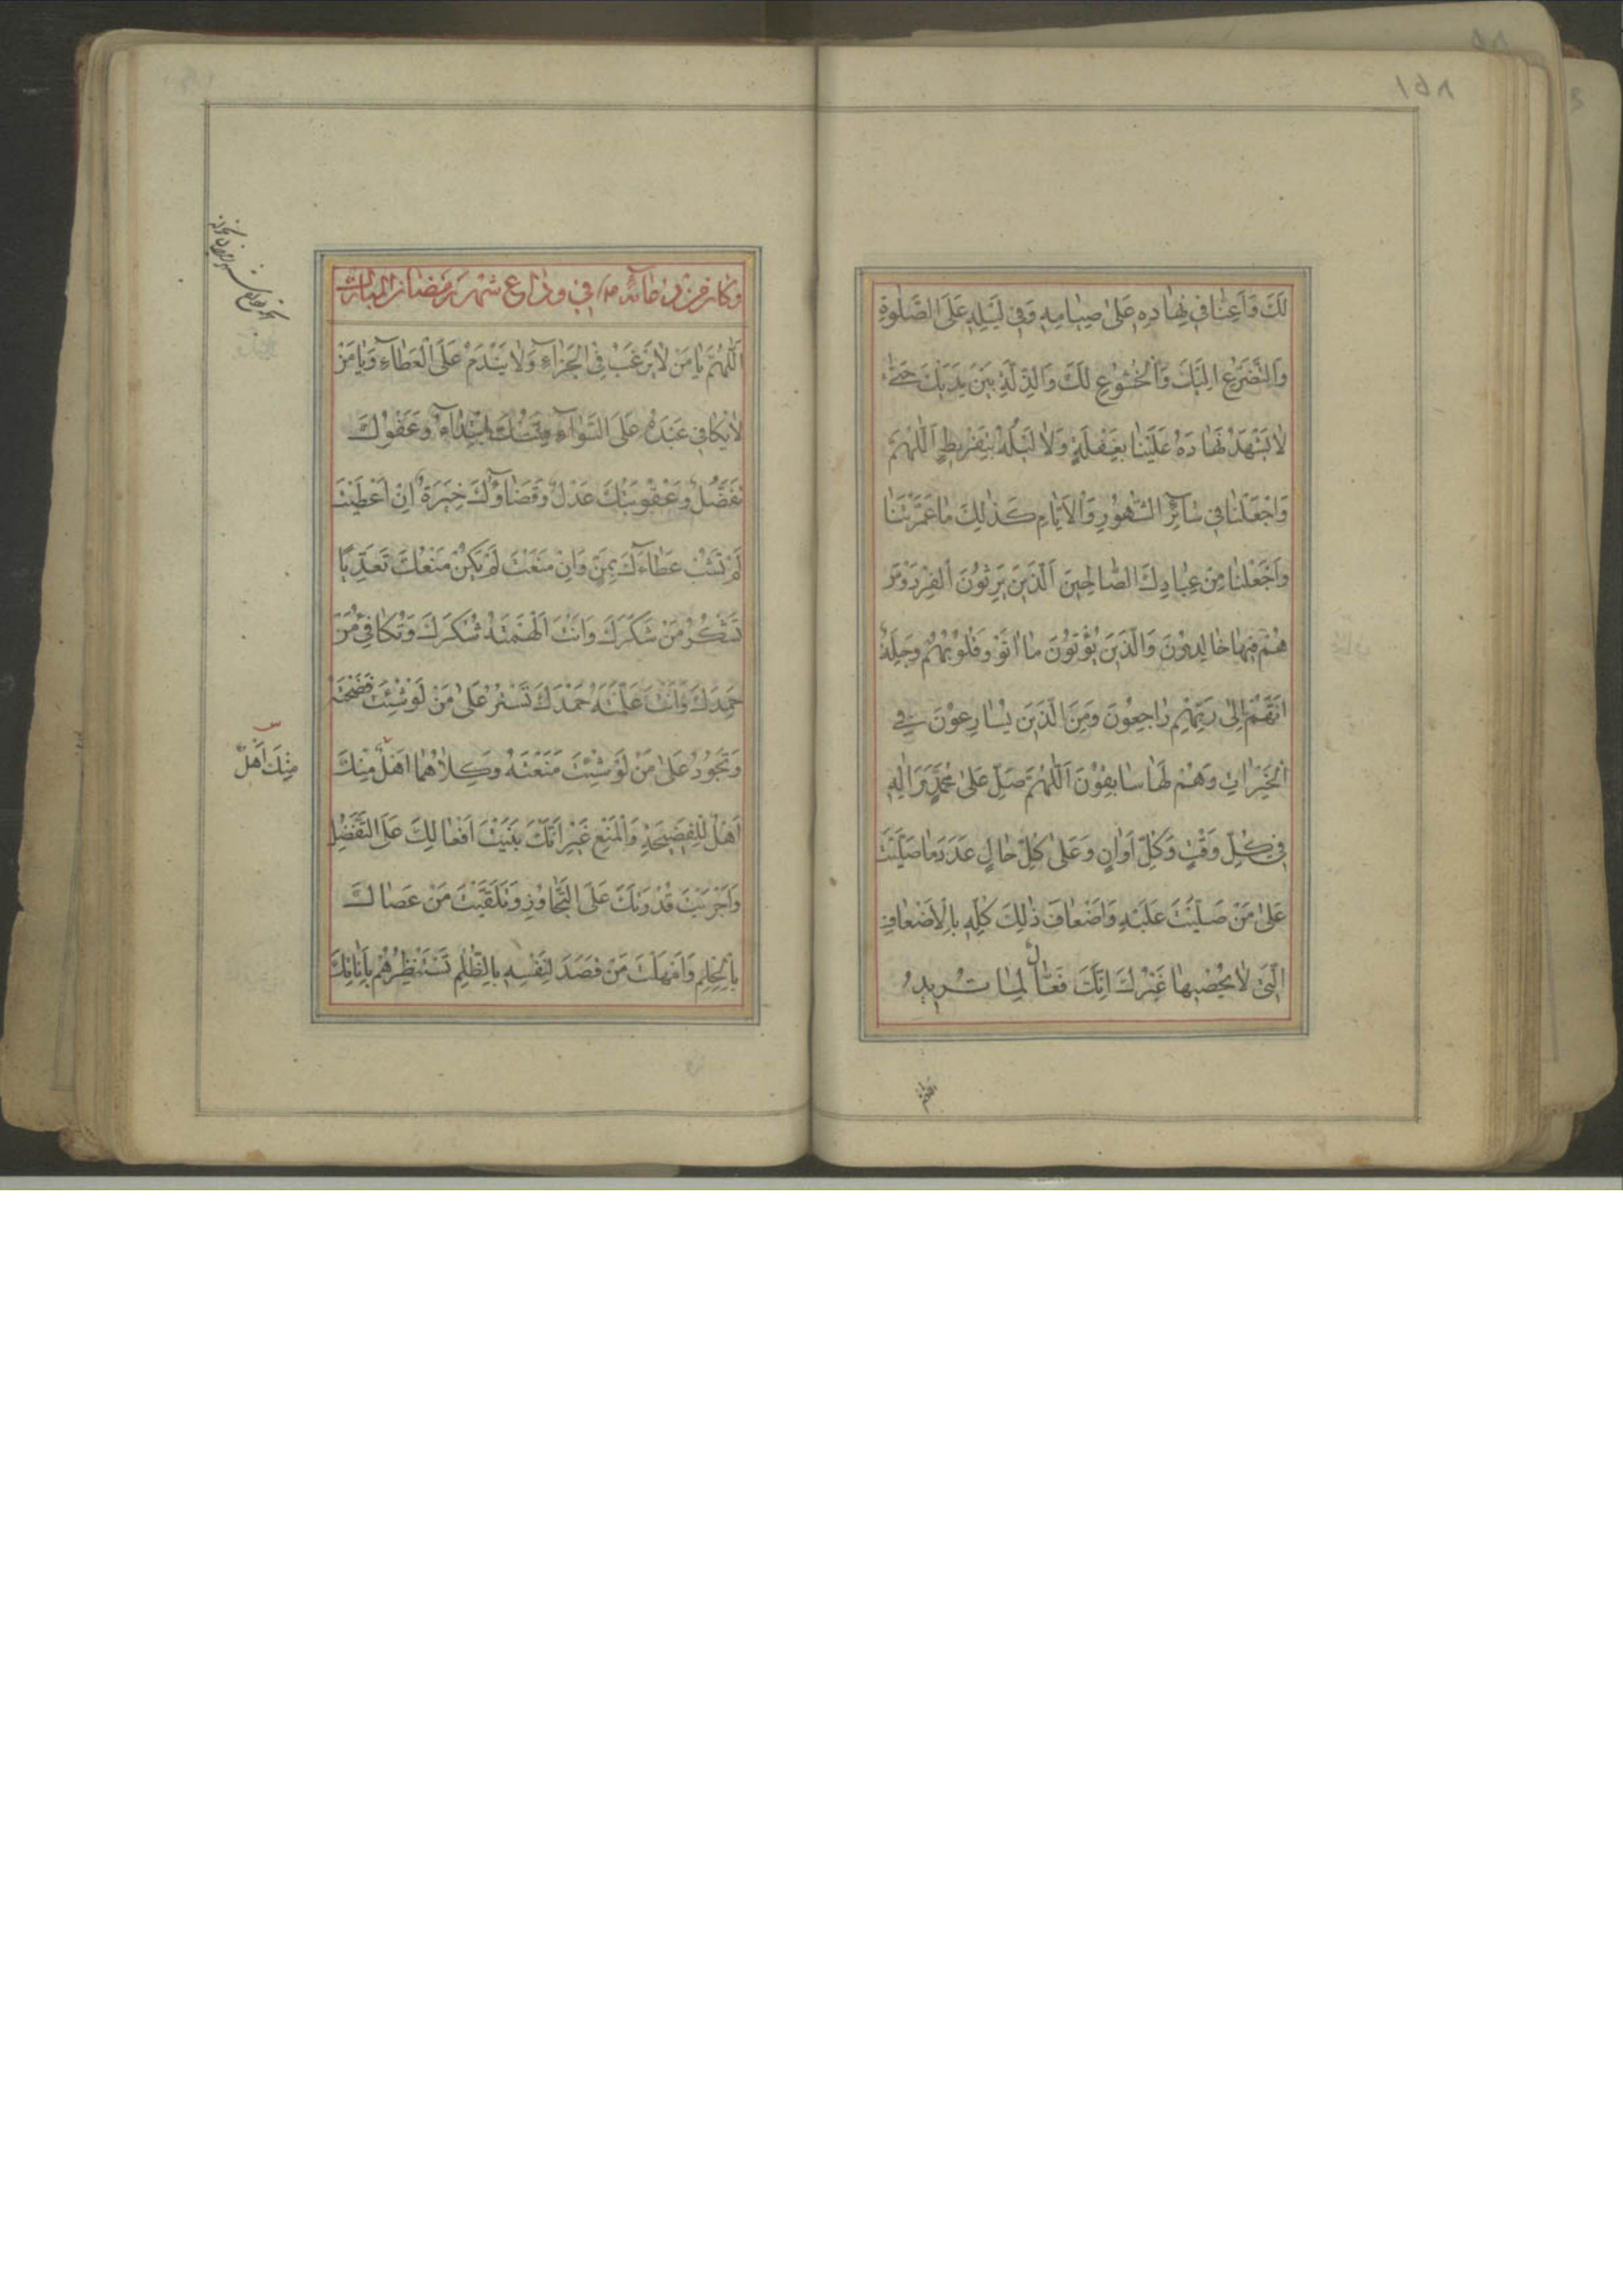 لَكَ وَاَعِنّا في نَهارِهِ عَلى صِيامِهِ وَفي لَيْلِهِ عَلَى الصَّلوةِ
وَالتَّضَرُّعِ اِلَيْكَ وَالْخُشُوعِ لَكَ وَالذِّلَّةِ بَيْنَ يَدَيْكَ حَتّى
لا يَشْهَدَ نَهارُهُ عَلَيْنا بِغَفْلَةٍ وَلا لَيْلُهُ بِتَفْريطٍ اَللّهُمَّ
وَاجْعَلْنا في سآئِرِ الشُّهُورِ وَالْاَيّامِ كَذلِكَ ما عَمَّرْتَنا
وَاجْعَلْنا مِنْ عِبادِكَ الصّالِحينَ اَلَّذينَ يَرِثُونَ الْفِرْدَوْسَ
هُمْ فيها خالِدُونَ وَالَّذينَ يُؤْتُونَ ما اتَوْا وَقُلُوبُهُمْ وَجِلَةٌ
اَنَّهُمْ اِلى رَبِّهِمْ راجِعُونَ وَمِنَ الَّذينَ يُسارِعُونَ في
الْخَيْراتِ وَهُمْ لَها سابِقُونَ اَللّهُمَّ صَلِّ عَلى مُحَمَّدٍ وَالِهِ
في كُلِّ وَقْتٍ وَكُلِّ اَوانٍ وَعَلى كُلِّ حالٍ عَدَدَ ما صَلَّيْتَ
عَلى مَنْ صَلَّيْتَ عَلَيْهِ وَاَضْعافَ ذلِكَ كُلِّهِ بِالْاَضْعافِ
الَّتي لا يُحْصيها غَيْرُكَ اِنَّكَ فَعّالٌ لِما تُريدُ
وكان من دعائه ع في وداع شهر رمضان المبارك
اَللّهُمَّ يا مَنْ لا يَرْغَبُ فِي الْجَزآءِ وَلا يَنْدَمُ عَلَى الْعَطآءِ وَيا مَنْ
لا يُكافي عَبْدَهُ عَلَى السَّوآءِ مِنَّتُكَ ابْتِدآءٌ وَعَفْوُكَ
تَفَضُّلٌ وَعُقُوبَتُكَ عَدْلٌ وَقَضآؤُكَ خِيَرَةٌ اِنْ اَعْطَيْتَ
لَمْ تَشُبْ عَطآءَكَ بِمَنٍّ وَاِنْ مَنَعْتَ لَمْ يَكُنْ مَنْعُكَ تَعَدِّيًا
تَشْكُرُ مَنْ شَكَرَكَ وَاَنْتَ اَلْهَمْتَهُ شُكْرَكَ وَتُكافِئُ مَنْ
حَمِدَكَ وَاَنْتَ عَلَّمْتَهُ حَمْدَكَ تَسْتُرُ عَلى مَنْ لَوْ شِئْتَ فَضَحْتَهُ
وَتَجُودُ عَلى مَنْ لَوْ شِئْتَ مَنَعْتَهُ وَكِلاهُما اَهْلٌ مِنْكَ
مِنْكَ اَهْلٌ
اَهْلٌ لِلْفَضيحَةِ وَالْمَنْعِ غَيْرَ اَنَّكَ بَنَيْتَ اَفْعالَكَ عَلَى التَّفَضُّلِ
وَاَجْرَيْتَ قُدْرَتَكَ عَلَى التَّجاوُزِ وَتَلَقَّيْتَ مَنْ عَصاكَ
بِالْحِلْمِ وَاَمْهَلْتَ مَنْ قَصَدَ لِنَفْسِهِ بِالظُّلْمِ تَسْتَنْظِرُهُمْ بِاَناتِكَ